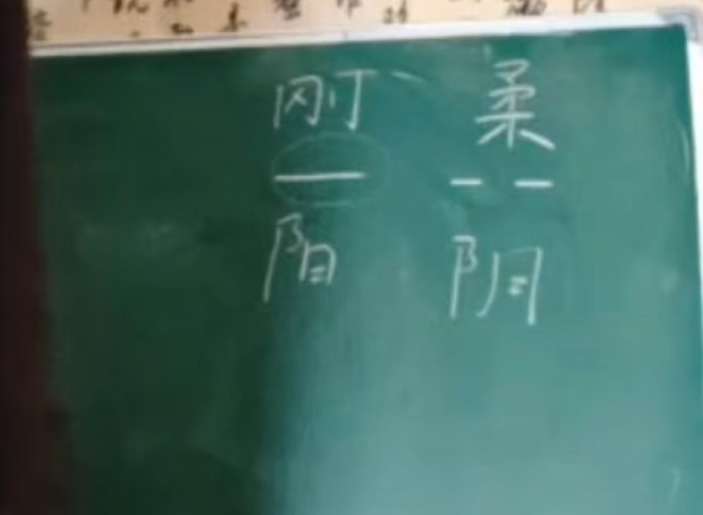 刚 柔
— — —
阳 阴